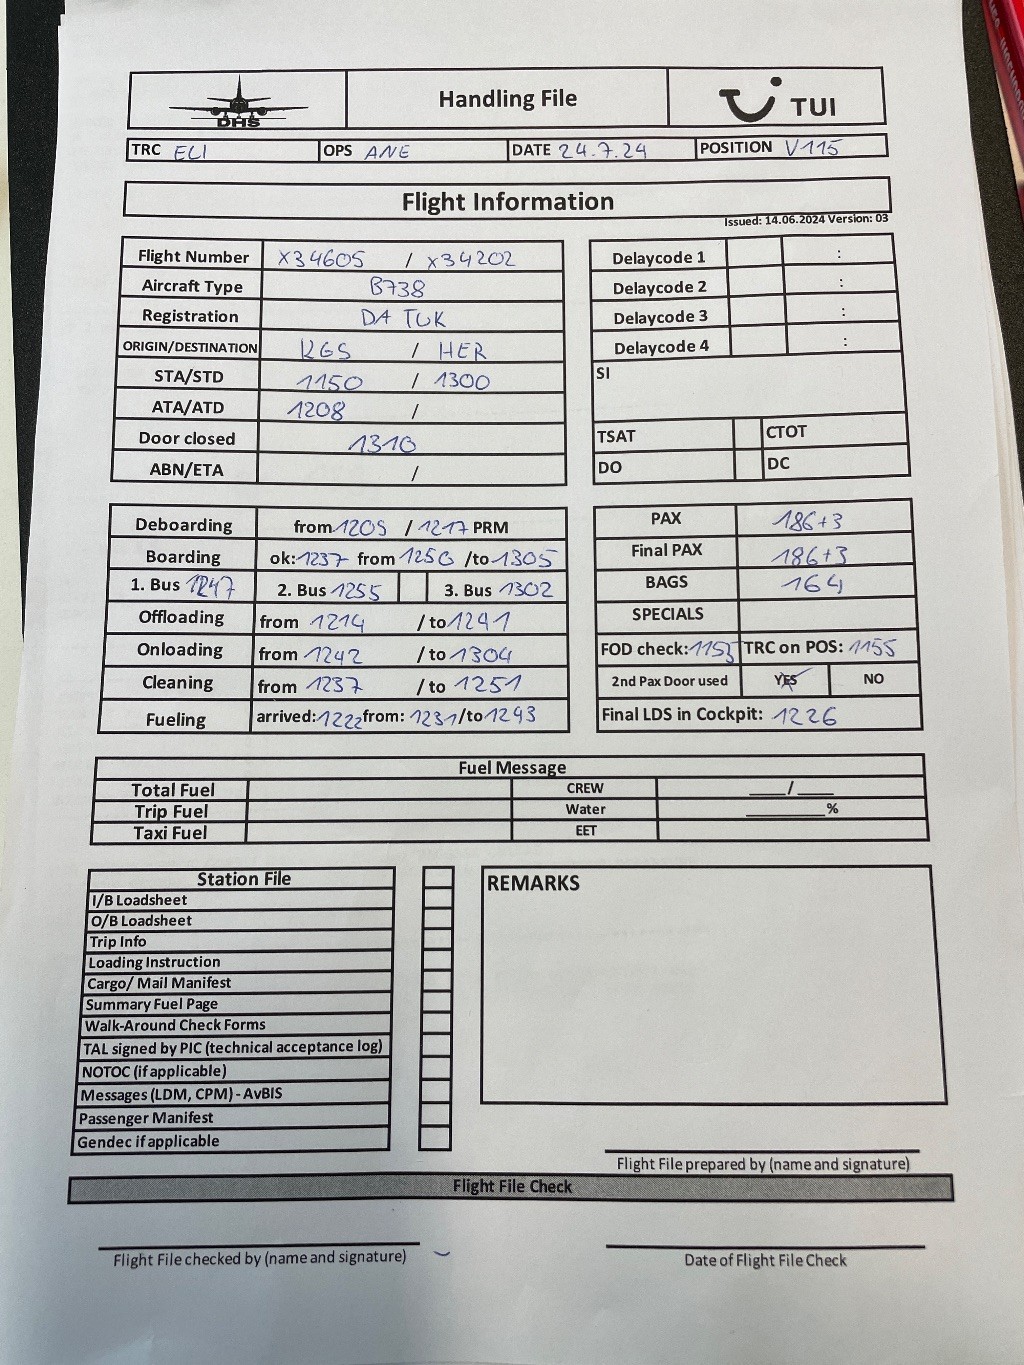 DHS Handling File TUI
TRC ELI OPS ANE DATE 24.7.24 POSITION V115
Flight Information
Issued: 14.06.2024 Version: 03
Flight Number X34605 / X34202
Aircraft Type B738
Registration DA TUK
ORIGIN/DESTINATION KGS / HER
STA/STD 1150 / 1300
ATA/ATD 1208 /
Door closed 1310
ABN/ETA /
Delaycode 1 :
Delaycode 2 :
Delaycode 3 :
Delaycode 4 :
SI
TSAT CTOT
DO DC
Deboarding from 1205 / 1217 PRM
Boarding ok: 1237 from 1250 /to 1305
1. Bus 1247 2. Bus 1255 3. Bus 1302
Offloading from 1214 / to 1241
Onloading from 1242 / to 1304
Cleaning from 1237 / to 1251
Fueling arrived: 1222 from: 1231 /to 1243
PAX 186+3
Final PAX 186+3
BAGS 164
SPECIALS
FOD check: 1155 TRC on POS: 1155
2nd Pax Door used YES NO
Final LDS in Cockpit: 1226
Fuel Message
Total Fuel CREW ____/____
Trip Fuel Water ________%
Taxi Fuel EET
Station File
I/B Loadsheet
O/B Loadsheet
Trip Info
Loading Instruction
Cargo/ Mail Manifest
Summary Fuel Page
Walk-Around Check Forms
TAL signed by PIC (technical acceptance log)
NOTOC (if applicable)
Messages (LDM, CPM) - AvBIS
Passenger Manifest
Gendec if applicable
REMARKS
Flight File prepared by (name and signature)
Flight File Check
Flight File checked by (name and signature)
Date of Flight File Check